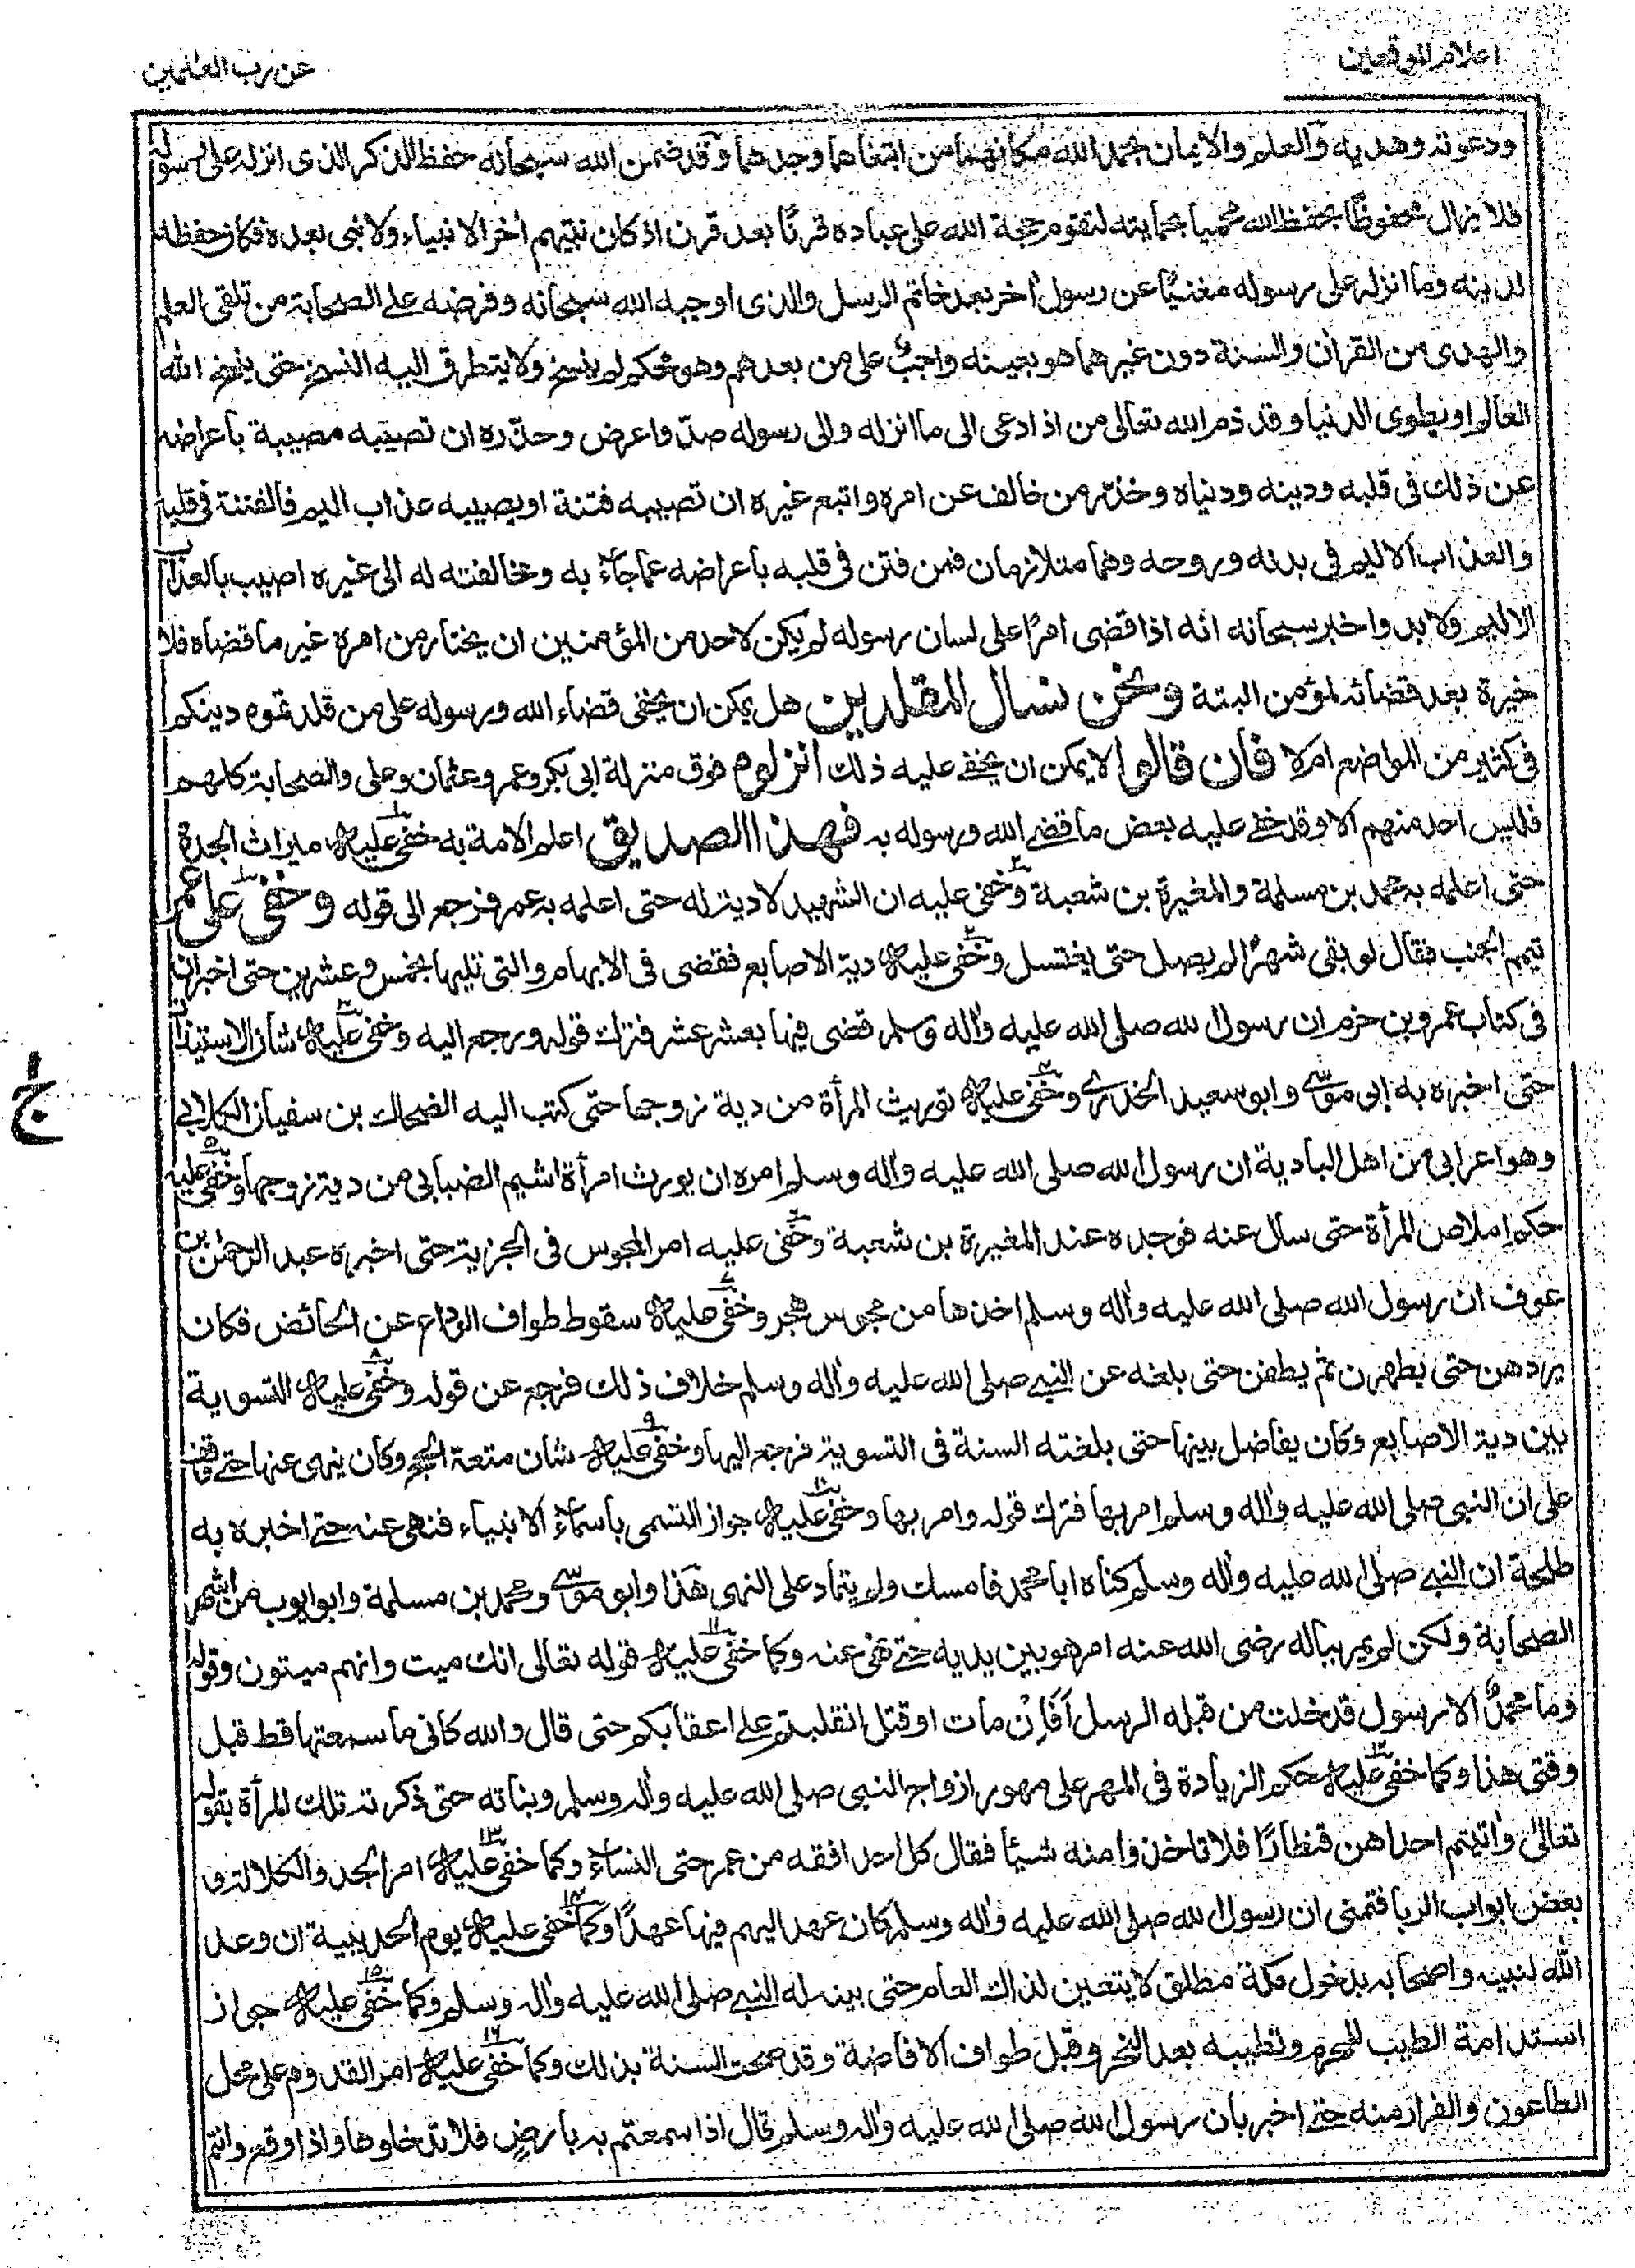 اعلام الموقعين
عن رب العلمين
ودعوته وهديه والعلم والايمان بحمد الله مكانهما من ابتغاهما وجدهما وقد ضمن الله سبحانه حفظ الذكر الذى انزله على رسوله
فلا يزال محفوظًا بحفظ الله محميا بحمايته لتقوم حجة الله على عباده قرنًا بعد قرن اذ كان نبيهم اخر الانبياء ولا نبى بعده فكان حفظه
لدينه وما انزله على رسوله مغنيًا عن رسول اخر بعد خاتم الرسل والذى اوجبه الله سبحانه وفرضه على الصحابة من تلقى العلم
والهدى من القران والسنة دون غيرهما هو بعينه واجبٌ على من بعدهم وهو محكم لم ينسخ ولا يتطرق اليه النسخ حتى ينسخ الله
العالم او يطوى الدنيا وقد ذم الله تعالى من اذا دعى الى ما انزله والى رسوله صدّ واعرض وحذّره ان تصيبه مصيبة باعراضه
عن ذلك فى قلبه ودينه ودنياه وحذّر من خالف عن امره واتبع غيره ان تصيبه فتنة او يصيبه عذاب اليم فالفتنة فى قلبه
والعذاب الاليم فى بدنه وروحه وهما متلازمان فمن فتن فى قلبه باعراضه عما جاء به ومخالفته له الى غيره اصيب بالعذاب
الاليم ولا بد واخبر سبحانه انه اذا قضى امرًا على لسان رسوله لم يكن لاحد من المؤمنين ان يختار من امره غير ما قضاه فلا
خيرة بعد قضائه لمؤمن البتة ونحن نسال المقلدين هل يمكن ان يخفى قضاء الله ورسوله على من قلدتموه دينكم
فى كثير من المواضع ام لا فان قالوا لا يمكن ان يخفے عليه ذلك انزلوه فوق منزلة ابى بكر وعمر وعثمان وعلى والصحابة كلهم
فليس احد منهم الا وقد خفے عليه بعض ما قضے الله ورسوله به فهذا الصديق اعلم الامة به خفى عليه ميراث الجدة
حتى اعلمه به محمد بن مسلمة والمغيرة بن شعبة وخفى عليه ان الشهيد لا دية له حتى اعلمه به عمر فرجع الى قوله وخفى على عمر
تيمم الجنب فقال لو بقى شهرًا لم يصل حتى يغتسل وخفى عليه دية الاصابع فقضى فى الابهام والتى تليها بخمس وعشرين حتى اخبر ان
فى كتاب عمرو بن حزم ان رسول الله صلى الله عليه واٰله وسلم قضى فيها بعشر عشر فترك قوله ورجع اليه وخفى عليه شان الاستيذان
حتى اخبره به ابى موسى وابو سعيد الخدرے وخفى عليه توريث المرأة من دية زوجها حتى كتب اليه الضحاك بن سفيان الكلابى
وهو اعرابى من اهل البادية ان رسول الله صلى الله عليه واٰله وسلم امره ان يورث امرأة اشيم الضبابى من دية زوجها وخفى عليه
حكم املاص المرأة حتى سال عنه فوجده عند المغيرة بن شعبة وخفى عليه امر المجوس فى الجزية حتى اخبره عبد الرحمٰن بن
عوف ان رسول الله صلى الله عليه واٰله وسلم اخذها من مجوس هجر وخفى عليه سقوط طواف الوداع عن الحائض فكان
يردهن حتى يطهرن ثم يطفن حتى بلغه عن النبے صلى الله عليه واٰله وسلم خلاف ذلك فرجع عن قوله وخفى عليه التسوية
بين دية الاصابع وكان يفاضل بينها حتى بلغته السنة فى التسوية فرجع اليها وخفى عليه شان متعة الحج وكان ينهى عنها حتے وقف
على ان النبى صلى الله عليه واٰله وسلم امر بها فترك قوله وامر بها وخفى عليه جواز التسمى باسماء الانبياء فنهى عنه حتے اخبره به
طلحة ان النبے صلى الله عليه واٰله وسلم كناه ابا محمد فامسك ولم يتماد على النهى هذا وابو موسى ومحمد بن مسلمة وابو ايوب من اشهر
الصحابة ولكن لم يمر بباله رضى الله عنه امر هو بين يديه حتے نهى عنه وكما خفى عليه قوله تعالى انك ميت وانهم ميتون وقوله
وما محمدٌ الا رسول قد خلت من قبله الرسل اَفَاِنْ مات او قتل انقلبتم على اعقابكم حتى قال والله كانى ما سمعتها قط قبل
وقتى هذا وكما خفى عليه حكم الزيادة فى المهر على مهور ازواج النبى صلى الله عليه واٰله وسلم وبناته حتى ذكرته تلك المرأة بقوله
تعالى واٰتيتم احداهن قنطارًا فلا تاخذوا منه شيئًا فقال كل احد افقه من عمر حتى النساء وكما خفى عليه امر الجد والكلالة و
بعض ابواب الربا فتمنى ان رسول الله صلى الله عليه واٰله وسلم كان عهد اليهم فيها عهدًا وكما خفى عليه يوم الحديبية ان وعد
الله لنبيه واصحابه بدخول مكة مطلق لا يتعين لذلك العام حتى بينه له النبے صلى الله عليه واٰله وسلم وكما خفى عليه جواز
استدامة الطيب للمحرم وتطيبه بعد النحر وقبل طواف الافاضة وقد صحت السنة بذلك وكما خفى عليه امر القدوم على محل
الطاعون والفرار منه حتے اخبر بان رسول الله صلى الله عليه واٰله وسلم قال اذا سمعتم به بارض فلا تدخلوها واذا وقع وانتم